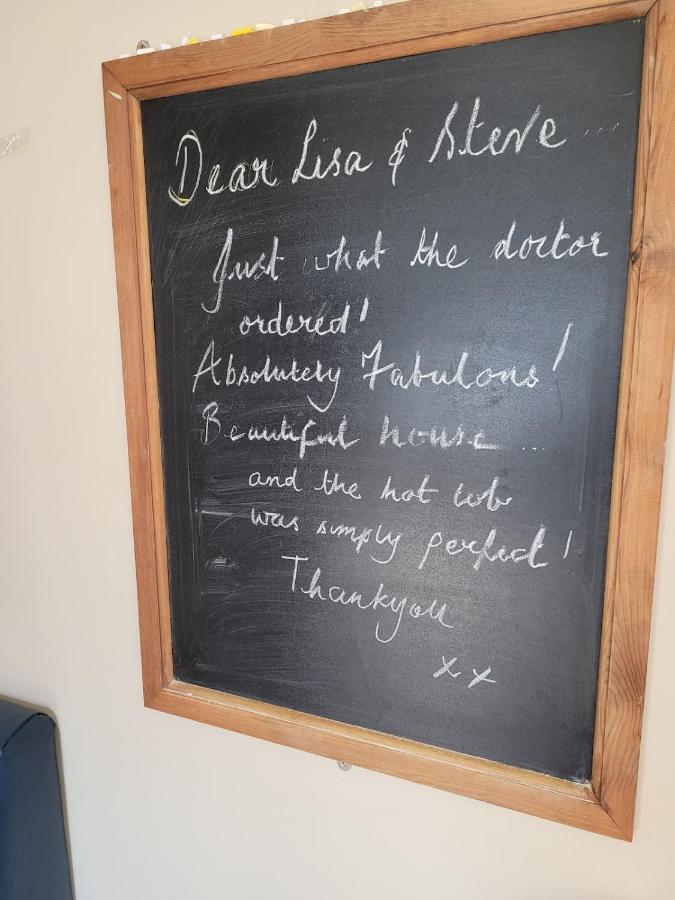 Dear Lisa & Steve ...
Just what the doctor
ordered!
Absolutely Fabulous!
Beautiful house ...
and the hot tub
was simply perfect!
Thankyou
xx